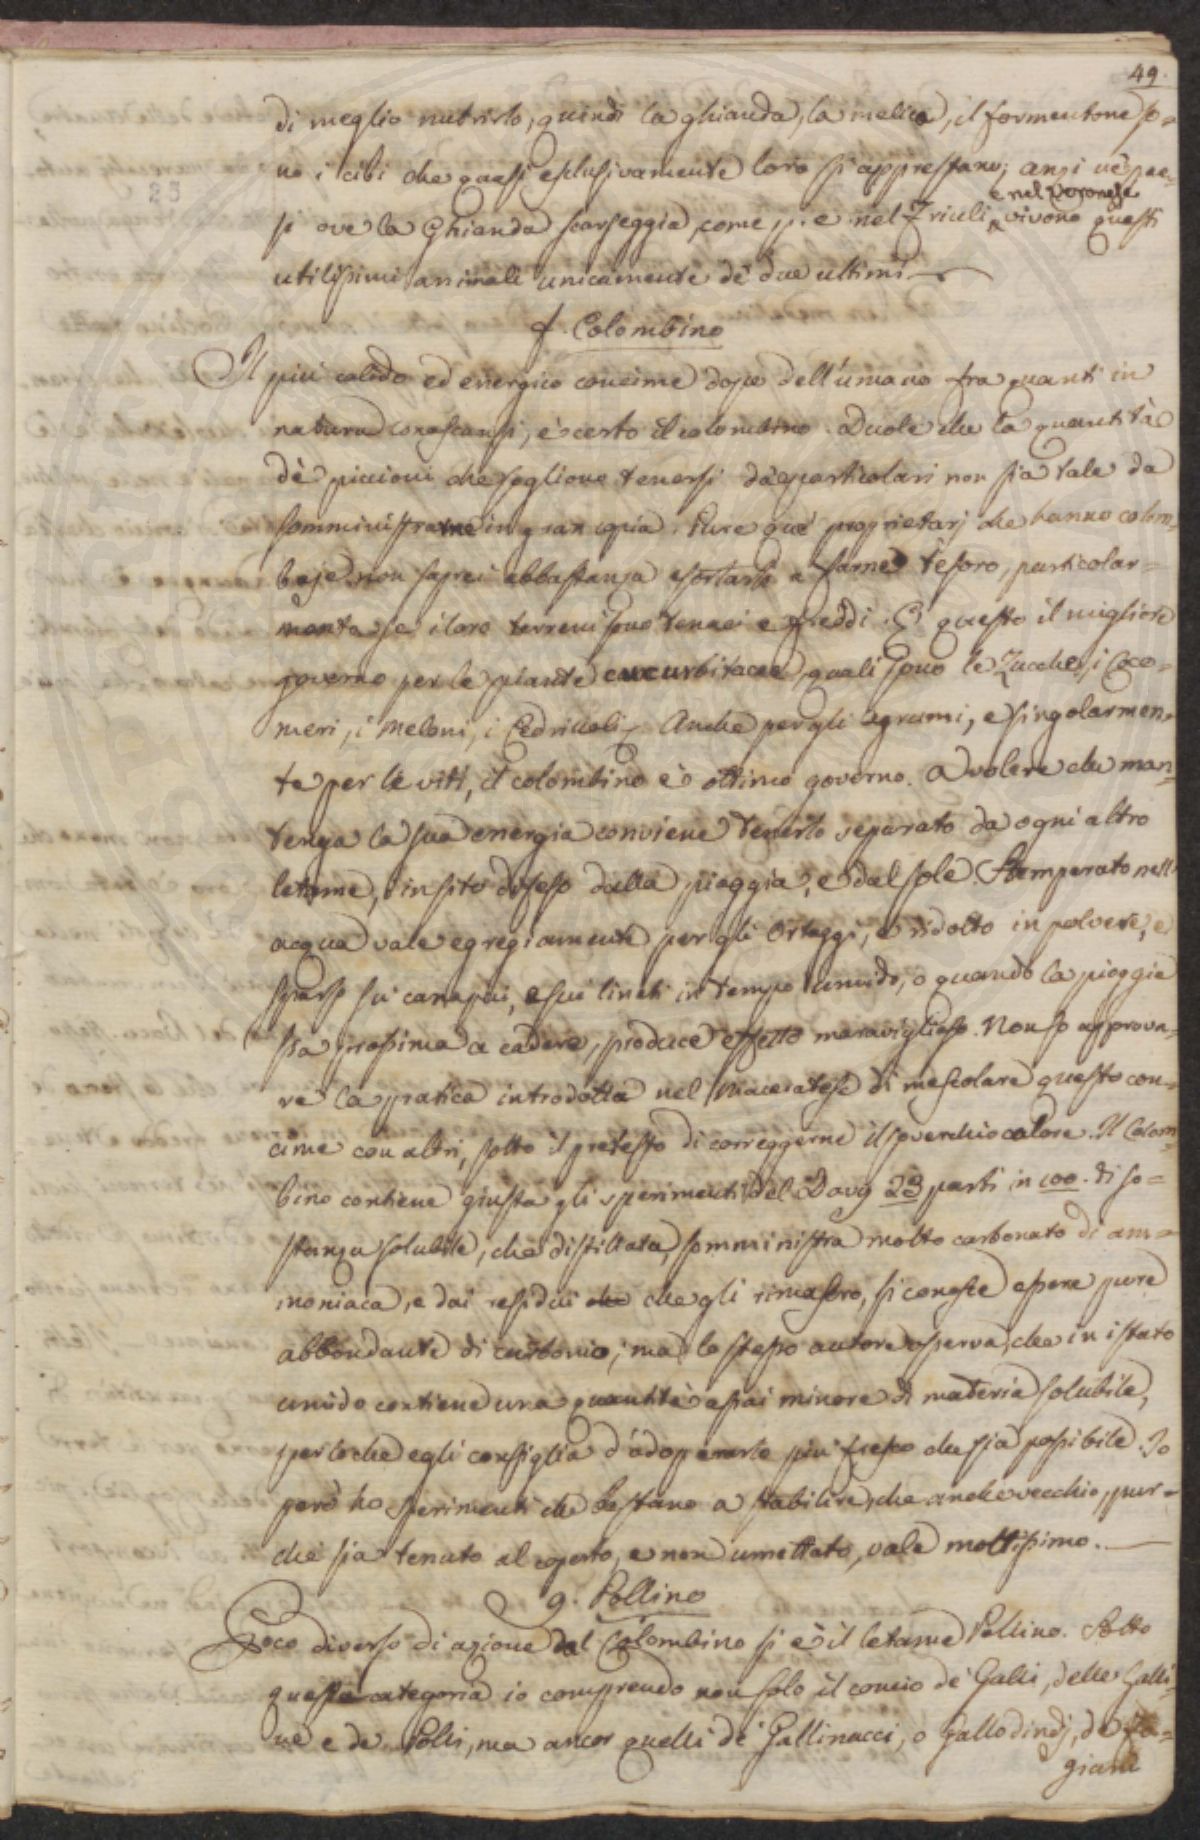 49.
di meglio nutrirlo, quindi la ghianda, la melica, il formentone so=
no i cibi che quasi esclusivamente loro si apprestano; anzi ne' pae=
e nel Veronese
si ove la Ghianda scarseggia, come p. e. nel Friuli, vivono questi
utilissimi animali unicamente de' due ultimi.
f. Colombino
Il più calido ed energico concime dopo dell'umano fra quanti in
natura conoscansi, è certo il colombino. Duole che la quantità
de' piccioni che sogliono tenersi da' particolari non sia tale da
somministrarne in gran copia. Pure que' proprietarj che hanno colom=
baje non saprei abbastanza esortarli a farne tesoro, particolar=
mente se i loro terreni sono tenaci e freddi. È questo il migliore
governo per le piante cucurbitacee, quali sono le Zucche, i Coco=
meri, i Meloni, i Cedriuoli. Anche per gli agrumi, e singolarmen=
te per le viti, il colombino è ottimo governo. A volere che man=
tenga la sua energia conviene tenerlo separato da ogni altro
letame, in sito difeso dalla pioggia, e dal sole. Stemperato nell'
acqua vale egregiamente per gli Ortaggi, e ridotto in polvere, e
sparso su' canapai, e sui lineti in tempo umido, o quando la pioggia
sia prossima a cadere, produce effetto maraviglioso. Non so approva=
re la pratica introdotta nel Maceratese di mescolare questo con=
cime con altri, sotto il pretesto di correggerne il soverchio calore. Il Colom
bino contiene giusta gli sperimenti del Davy 23 parti in 100. di so=
stanza solubile, che distillata, somministra molto carbonato di am=
moniaca, e dai residui che che gli rimasero, si conosce essere pure
abbondante di carbonio; ma lo stesso autore osserva, che in istato
umido contiene una quantità assai minore di materia solubile,
perloché egli consiglia d'adoperarlo più fresco che sia possibile. Io
però ho sperimenti che bastano a stabilire, che anche vecchio, pur=
ché sia tenuto al coperto, e non umettato, vale moltissimo.
g. Pollino
Poco diverso di azione dal Colombino si è il letame Pollino. Sotto
questa categoria io comprendo non solo il concio de' Galli, delle Galli=
ne e de' Polli, ma ancor quelli de' Gallinacci, o Gallodindj, de' Fa=
giani